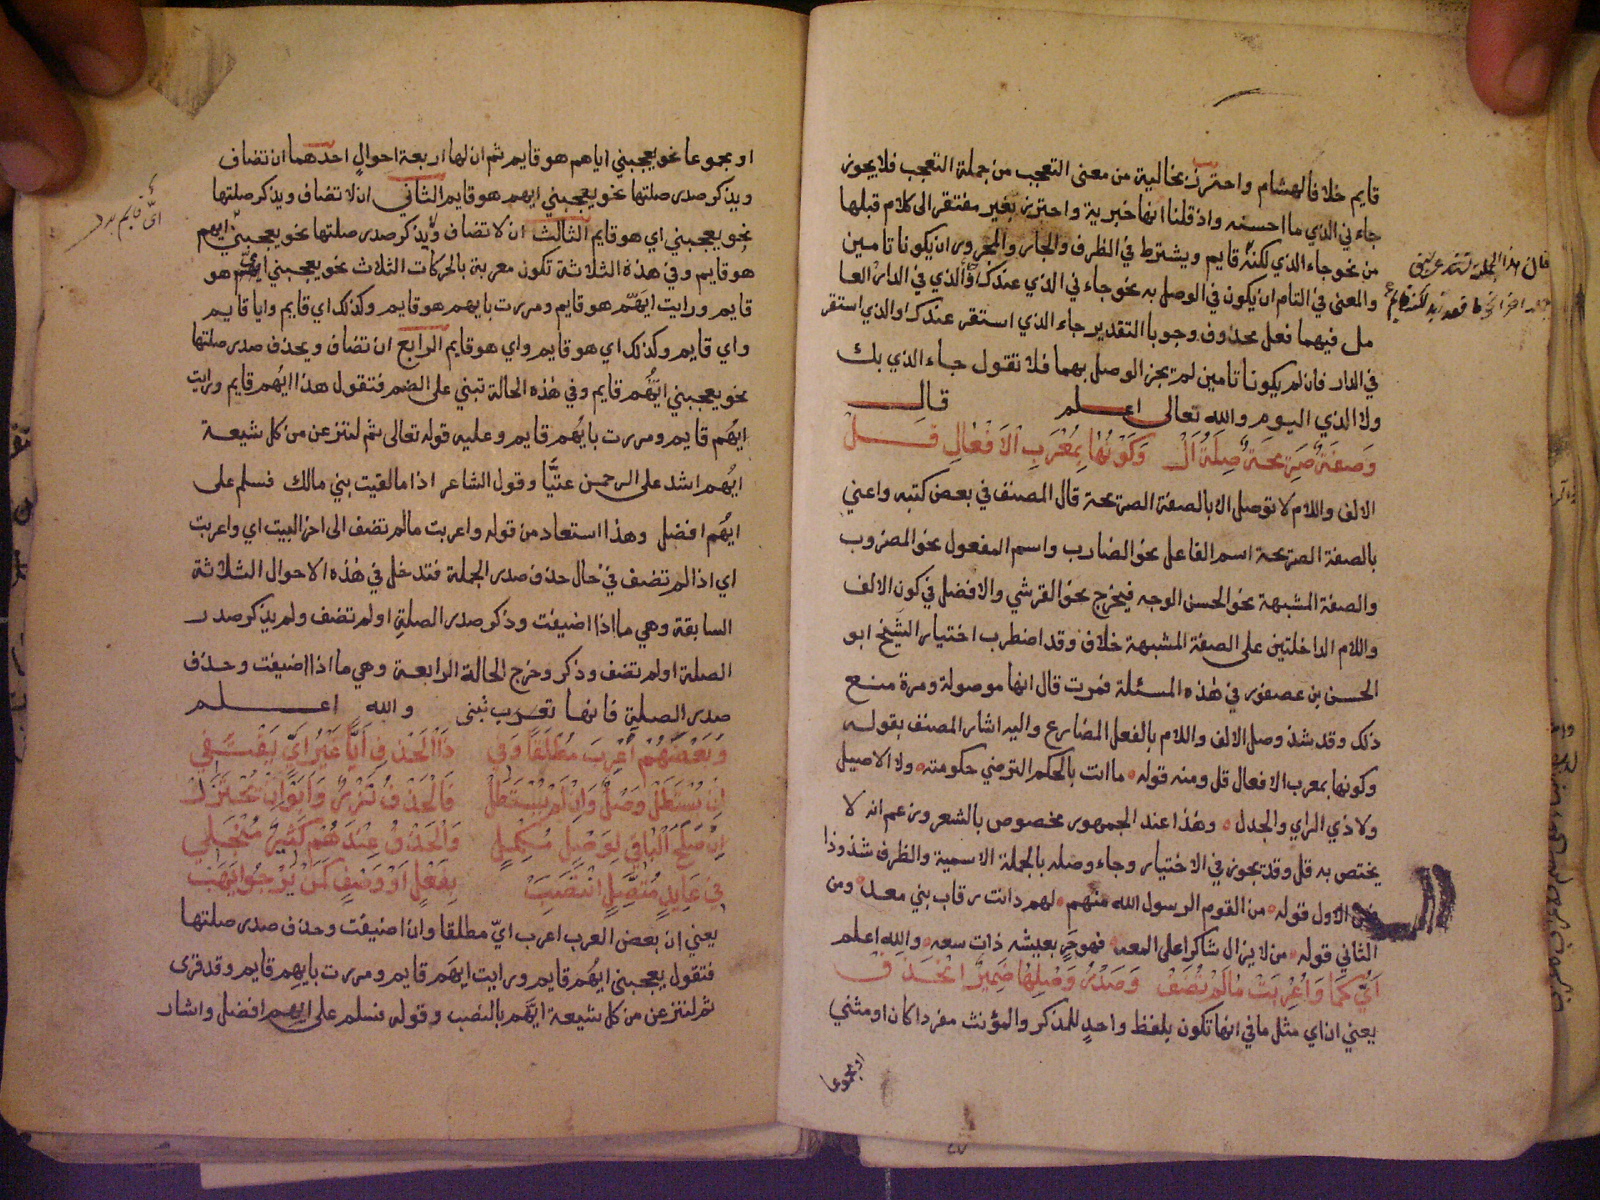 قايم خلافا لهشام واحترز بخالية من معنى التعجب من جملة التعجب فلا يجوز
جاء ني الذي ما احسنه واذ قلنا انها خبرية واحترز بغير مفتقر الى كلام قبلها
من نحو جاء الذي لكنه قايم ويشترط في الظرف والجار والمجرور ان يكونا تامين
والمعنى في التام ان يكون في الوصل به نحو جاء ني الذي عندك والذي في الدار العا
مل فيهما فعل محذوف وجوبا التقدير جاء الذي استقر عندك او الذي استقر
في الدار فان لم يكونا تامين لم يجز الوصل بهما فلا تقول جاء الذي بك
ولا الذي اليوم والله تعالى اعلم قال
وَصِفَةٌ صَرِيحَةٌ صِلَةُ اَلْ وَكَوْنُهَا بِمُعْرَبِ الاَفْعَالِ قَلْ
الالف واللام لا توصل الا بالصفة الصريحة قال المصنف في بعض كتبه واعني
بالصفة الصريحة اسم الفاعل نحو الضارب واسم المفعول نحو المضروب
والصفة المشبهة نحو الحسن الوجه فيخرج نحو القرشي والافضل في كون الالف
واللام الداخلتين على الصفة المشبهة خلاف وقد اضطرب اختيار الشيخ ابو
الحسن بن عصفور في هذه المسئلة فمرت قال انها موصولة ومرة منع
ذلك وقد شذ وصل الالف واللام بالفعل المضارع واليه اشار المصنف بقوله
وكونها بمعرب الافعال قل ومنه قوله ما انت بالحكم الترضي حكومته ولا الاصيل
ولا ذي الراي والجدل وهذا عند الجمهور مخصوص بالشعر وزعم انه لا
يختص به قل وقد يجوز في الاختيار وجاء وصله بالجملة الاسمية والظرف شذوذا
فمن الاول قوله من القوم الرسول الله منهم لهم دانت رقاب بني معد ومن
الثاني قوله من لا يزال شاكرا على المعه فهو حر بعيشه ذات سعه والله اعلم
اَيٌّ كَمَا وَاُعْرِبَتْ مَا لَمْ تُضَفْ وَصَدْرُ وَصْلِهَا ضَمِيرٌ انْحَذَفْ
يعني ان اي مثل ما في انها تكون بلفظ واحد للمذكر والمؤنث مفردا كان او مثنى
او مجموعا
او مجموعا نحو يعجبني اياهم هو قايم ثم ان لها اربعة احوال احدهما ان تضاف
ويذكر صدر صلتها نحو يعجبني ايهم هو قايم الثاني ان لا تضاف ويذكر صلتها
نحو يعجبني اي هو قايم الثالث ان لا تضاف ولا يذكر صدر صلتها نحو يعجبني ايهم
هو قايم وفي هذه الثلاثة تكون معربة بالحركات الثلاث نحو يعجبني ايهم هو
قايم ورايت ايَهم هو قايم ومررت بايهم هو قايم وكذلك اي قايم وايا قايم
واي قايم وكذلك اي هو قايم واي هو قايم الرابع ان تضاف ويحذف صدر صلتها
نحو يعجبني ايُّهُم قايم وفي هذه الحالة تبني على الضم فتقول هذا ايُهم قايم ورايت
ايهُم قايم ومررت بايُهم قايم وعليه قوله تعالى ثم لننزعن من كل شيعة
ايُهم اشد على الرحمن عتيًّا وقول الشاعر اذا ما لقيت بني مالك فسلم على
ايُهُم افضل وهذا استعاد من قوله واعربت ما لم تضف الى اخر البيت اي واعربت
اي اذا لم تضف في حال حذف صدر الجملة فتدخل في هذه الاحوال الثلاثة
السابقة وهي ما اذا اضيفت وذكر صدر الصلة او لم تضف ولم يذكر صدر
الصلة او لم تضف وذكر وخرج الحالة الرابعة وهي ما اذا اضيفت وحذف
صدر الصلة فانها تبنى والله اعلم
وَبَعْضُهُمْ اَعْرَبَ مُطْلَقًا وَفِي ذَا الْحَذْفِ اَيًّا غَيْرُ اَيٍّ يَقْتَفِي
اِنْ يُسْتَطَلْ وَصْلٌ وَاِنْ لَمْ يُسْتَطَلْ فَالْحَذْفُ نَزْرٌ وَاَبَوْا اَنْ يُخْتَزَلْ
اِنْ صَلَحَ الْبَاقِي لِوَصْلٍ مُكْمِلٍ وَالْحَذْفُ عِنْدَهُمْ كَثِيرٌ مُنْجَلِي
فِي عَايِدٍ مُتَّصِلٍ انْتَصَبْ بِفَعْلٍ اَوْ وَصْفٍ كَمَنْ نَرْجُوا يَهَبْ
يعني ان بعض العرب اعرب ايّ مطلقا وان اضيفت وحذف صدر صلتها
فتقول يعجبني ايُهم قايم ورايت ايهَم قايم ومررت بايهِم قايم وقد قرى
ثم لننزعن من كل شيعة ايَّهم بالنصب وقوله فسلم على ايهم افضل واشار